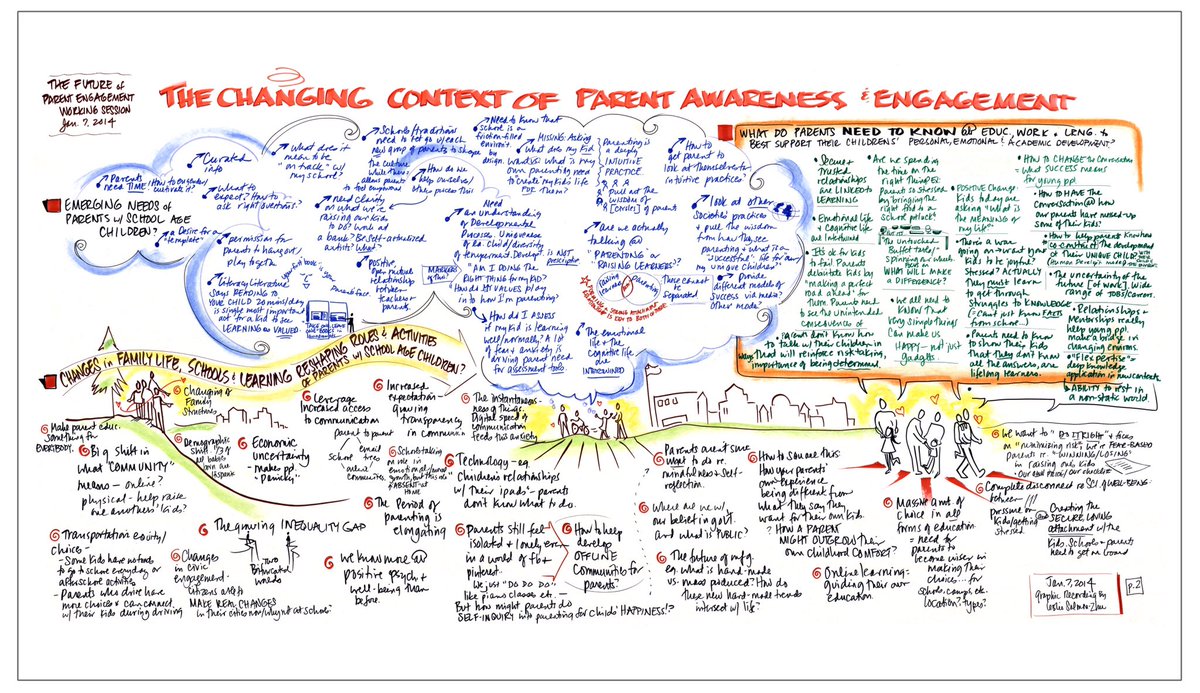 THE FUTURE of
PARENT ENGAGEMENT
WORKING SESSION
Jan. 7, 2014
THE CHANGING CONTEXT OF PARENT AWARENESS & ENGAGEMENT
EMERGING NEEDS OF
PARENTS w/ SCHOOL AGE
CHILDREN?
Parents
need TIME!
Curated
info
What does it
mean to be
"on track" w/
my school?
What to
expect? How to
ask right questions?
a Desire for a
"template"
permission for
parents to hang out/
play together
Literacy Literature
says READING TO
YOUR CHILD 20 mins/day
is single most important
act for a kid to see
LEARNING as VALUED.
Schools/traditions
need to
new group of parents to shape
the culture
How do we
help ourselves/
others process this
need clarity
on what we're
raising our kids
to DO? Work at
a bank? Be Self-actualized
artists? What?
Positive,
open mutual
relationships
between
teacher &
parents.
Need to know that
school is a
friction-filled
environ't. by
design.
MISSING: Asking
what does my kid
want? vs: what is my
own parent
need
to create my kid's life
FOR them?
Need
an understanding
of Developmental
Process, Uniqueness
of ea. Child/diversity
of tempermant/Develop't.
is NOT
prescriptive
"AM I DOING THE
RIGHT THING for my KID?
How do its VALUES play
in to how I'm parenting?
MARKERS
of this?
How do I ASSESS
if my kid is learning
well/normally? A lot
of fear & anxiety is
driving parent need
for assessment tools
Parenting is
a deeply
INTUITIVE
PRACTICE
Pull out the
wisdom of
[circles] of parents
How to
get parent to
look at themselves
intuitive practices?
are we actually
talking @
PARENTING or
RAISING LEARNERS?
Raising
learners
Parenting
These can't be
separated
The emotional
life & the
Cognitive life
are
INTERTWINED
look at other
Societies' practices
& pull the wisdom
from how they see
parenting & what is a
"successful" life for any/
my unique children"
Provide
different models of
success via media?
other mode?
WHAT DO PARENTS NEED TO KNOW @ EDUC., WORK, LRNG. &
BEST SUPPORT THEIR CHILDREN'S PERSONAL, EMOTIONAL & ACADEMIC DEVELOPMENT?
Secure
trusted
relationships
are LINKED to
LEARNING
Emotional life
& Cognitive life
are Intertwined
It's ok for kids
to fail. Parents
debilitate kids by
"making a perfect
road ahead" for
them. Parents need
to see the unintended
consequences of
parents don't know how
to talk w/ their children in
ways that will reinforce risk taking,
importance of being determined.
Are we spending
the time on the
right things? PER
parent is stressed
by bringing the
right food to a
school potluck"
The untouched
Buffet table/
spinning our wheels
WHAT WILL MAKE
A DIFFERENCE?
We all need to
Know that
very simple things
Can make us
HAPPY - not just
gadgets.
POSITIVE Change:
Kids today are
asking "What is
the MEANING of
my life"
There's a war
going on - want your
kids to be joyful?
Stressed? ACTUALLY
they must learn
to get through
Struggles to KNOWLEDGE.
= (Can't just know FACTS
from school...)
Parents need to know
to show their kids
that they don't know
all the answers, are
lifelong learners.
How to CHANGE the Conversation
= what SUCCESS means
for young ppl
How to HAVE THE
Conversation @ how
our parents have messed-up
some of their kids?
How to help parent
co-construct the development
of their UNIQUE CHILD?
The uncertainty of the
future [of work], wide
range of JOBS/careers.
Relationships &
Mentorships really
help young ppl.
make a bridge in
changing environs.
"Flexpertise" =
deep knowledge
application in new contexts
ABILITY to exist in
a non-static world.
CHANGES in FAMILY LIFE, SCHOOLS & LEARNING RESHAPING ROLES & ACTIVITIES
of PARENTS w/ SCHOOL AGE CHILDREN?
Make parent educ.
something for
EVERYBODY.
Changing of
Family
Structures
Big Shift in
what "COMMUNITY"
means - online?
physical - help raise
one anothers' kids?
Demographic
Shift
Hispanic
Economic
uncertainty
- makes ppl.
"panicky"
Leverage
Increased access
to communication
parent to parent
email
school trees
Increased
expectation
growing
transparency
in communic'n
Schools taking
on role in
emotional/human
growth, but this role
is ABSENT at
HOME
The Period of
parenting is
elongating
The instantaneous-
ness of things.
Digital speed of
communication
feeds this anxiety
Technology - eg.
Children's relationships
w/ their ipads - parents
don't know what to do.
Transportation equity/
choice -
- Some kids have no funds
to go to school everyday or
afterschool activities
- Parents who drive have
more choices & can connect
w/ their kids during driving
The growing INEQUALITY GAP
TWO
Bifurcated
worlds
Changes
in civic
engagement.
Citizens ABLE to
MAKE REAL CHANGES
in their cities now/why not at school?
We know more @
positive psych &
well-being than
before.
Parents still feel
isolated & lonely even
in a world of fb &
pinterest.
We just "DO DO DO"
like piano classes etc. -
But how might parents do
SELF-INQUIRY into parenting for childs' HAPPINESS!?
How to help
develop
OFFLINE
Communities for
parents?
Parents aren't sure
what to do re.
mindfulness & self-
reflection.
Where are we w/
our belief in gov't.
and what is PUBLIC?
The future of mfg.
eg. what is hand-made
vs. mass produced? How do
these new hard-made trends
intersect w/ life?
How to
How your parents'
own experience
being different from
what they say they
want for their own kids.
= How A PARENT
MIGHT OUTGROW their
own childhood COMFORT?
Online learning -
guiding their own
education.
Massive amt. of
choice in all
forms of education
= need for
parents to
become wiser in
making their
choice... for
schools, camps, etc.
location? types?
We want to "DO IT RIGHT" & focus
on "minimizing risk", we're FEAR-BASED
Parents re. "WINNING/LOSING"
in raising our kids
Complete disconnect re SCI. of WELL-BEING:
between
pressure on
Kids/getting
stressed.
Creating the
SECURE, LOVING
attachment w/ the
Kids. Schools & parents
need to get on board
Jan. 7, 2014
Graphic Recording By
Leslie Salmon-Zhu
p.2